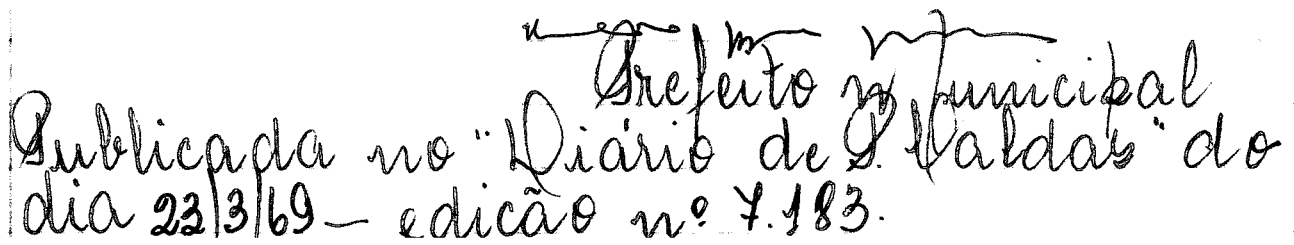 Prefeito Municipal
Publicada no "Diário de P. Caldas" do
dia 23/3/69 - edição nº 7.183.